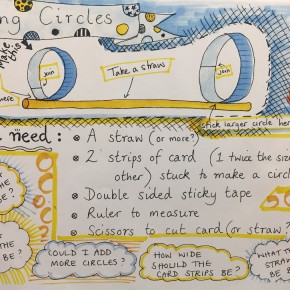 ng Circles
Make this
join
Take a straw
join
here
stick larger circle her
need :
A straw (or more?)
2 strips of card (1 twice the size
other) stuck to make a circle
Double sided sticky tape
Ruler to measure
Scissors to cut card (or straw?
THE
BE?
THE
BE?
COULD I ADD
MORE CIRCLES?
HOW WIDE
SHOULD THE
CARD STRIPS BE?
WHAT
STRAW
BE?